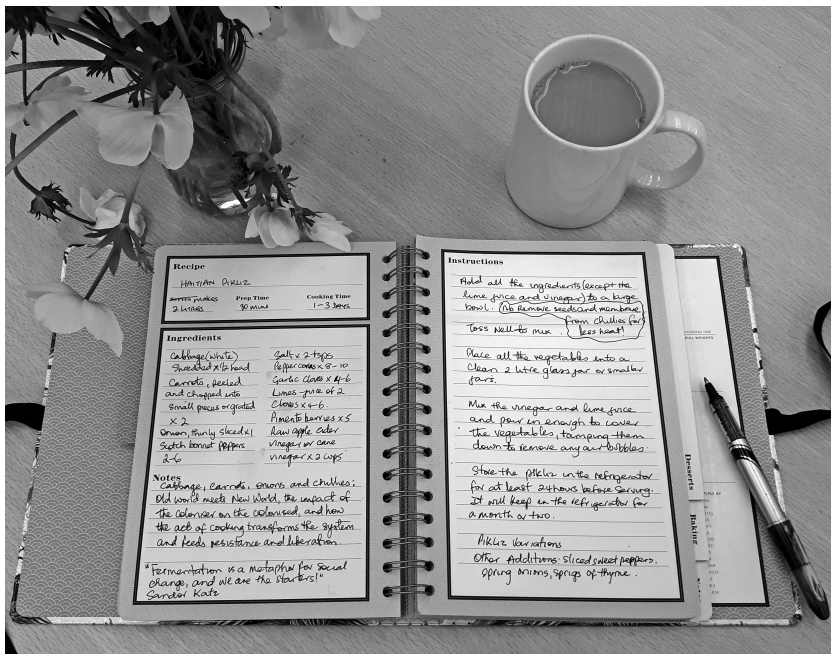 Recipe
HAITIAN PIKLIZ
Serves makes
2 LITRES
Prep Time
30 mins
Cooking Time
1-3 DAYS
Ingredients
Cabbage (white)
Shredded x 1/2 head
Carrots, peeled
and chopped into
small pieces or grated
x 2
Onion, thinly sliced x 1
Scotch bonnet peppers
2-6
Salt x 2 tsps
Peppercorns x 8-10
Garlic cloves x 4-6
Limes - juice of 2
Cloves x 4-6.
Pimento berries x 5
Raw apple cider
vinegar or cane
vinegar x 2 cups
Notes
Cabbage, Carrots, onions and chillies:
Old world meets New World, the impact of
the coloniser on the colonised, and how
the act of cooking transforms the system
and feeds resistance and liberation
"Fermentation is a metaphor for social
change, and we are the starters!"
Sandor Katz
Instructions
Add all the ingredients (except the
lime juice and vinegar) to a large
bowl. Nb Remove seeds and membrane
from chillies for
less heat!
Toss well to mix.
Place all the vegetables into a
clean 2 litre glass jar or smaller
jars.
Mix the vinegar and lime juice
and pour in enough to cover
the vegetables, tamping them
down to remove any air bubbles.
Store the pikliz in the refrigerator
for at least 24 hours before serving.
It will keep in the refrigerator for
a month or two.
Pikliz Variations
Other Additions: Sliced sweet peppers,
spring onions, sprigs of thyme.
Desserts
Baking